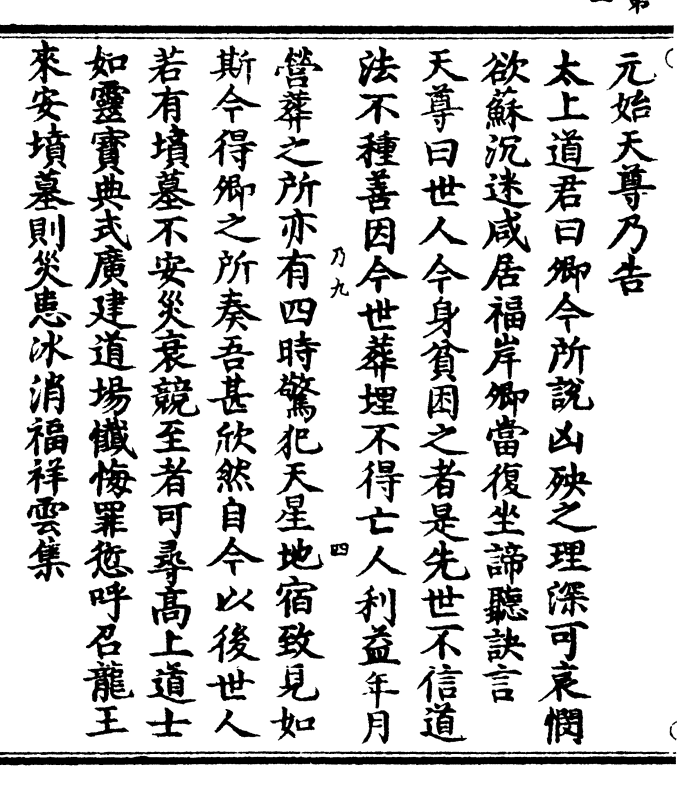 元始天尊乃告
太上道君曰卿今所說凶殃之理深可哀憫
欲蘇沉迷咸居福岸卿當復坐諦聽訣言
天尊曰世人今身貧困之者是先世不信道
法不種善因今世葬埋不得亡人利益年月
乃九
四
營葬之所亦有四時驚犯天星地宿致見如
斯今得卿之所奏吾甚欣然自今以後世人
若有墳墓不安災衰競至者可尋高上道士
如靈寶典式廣建道場懺悔罪愆呼召龍王
來安墳墓則災患冰消福祥雲集